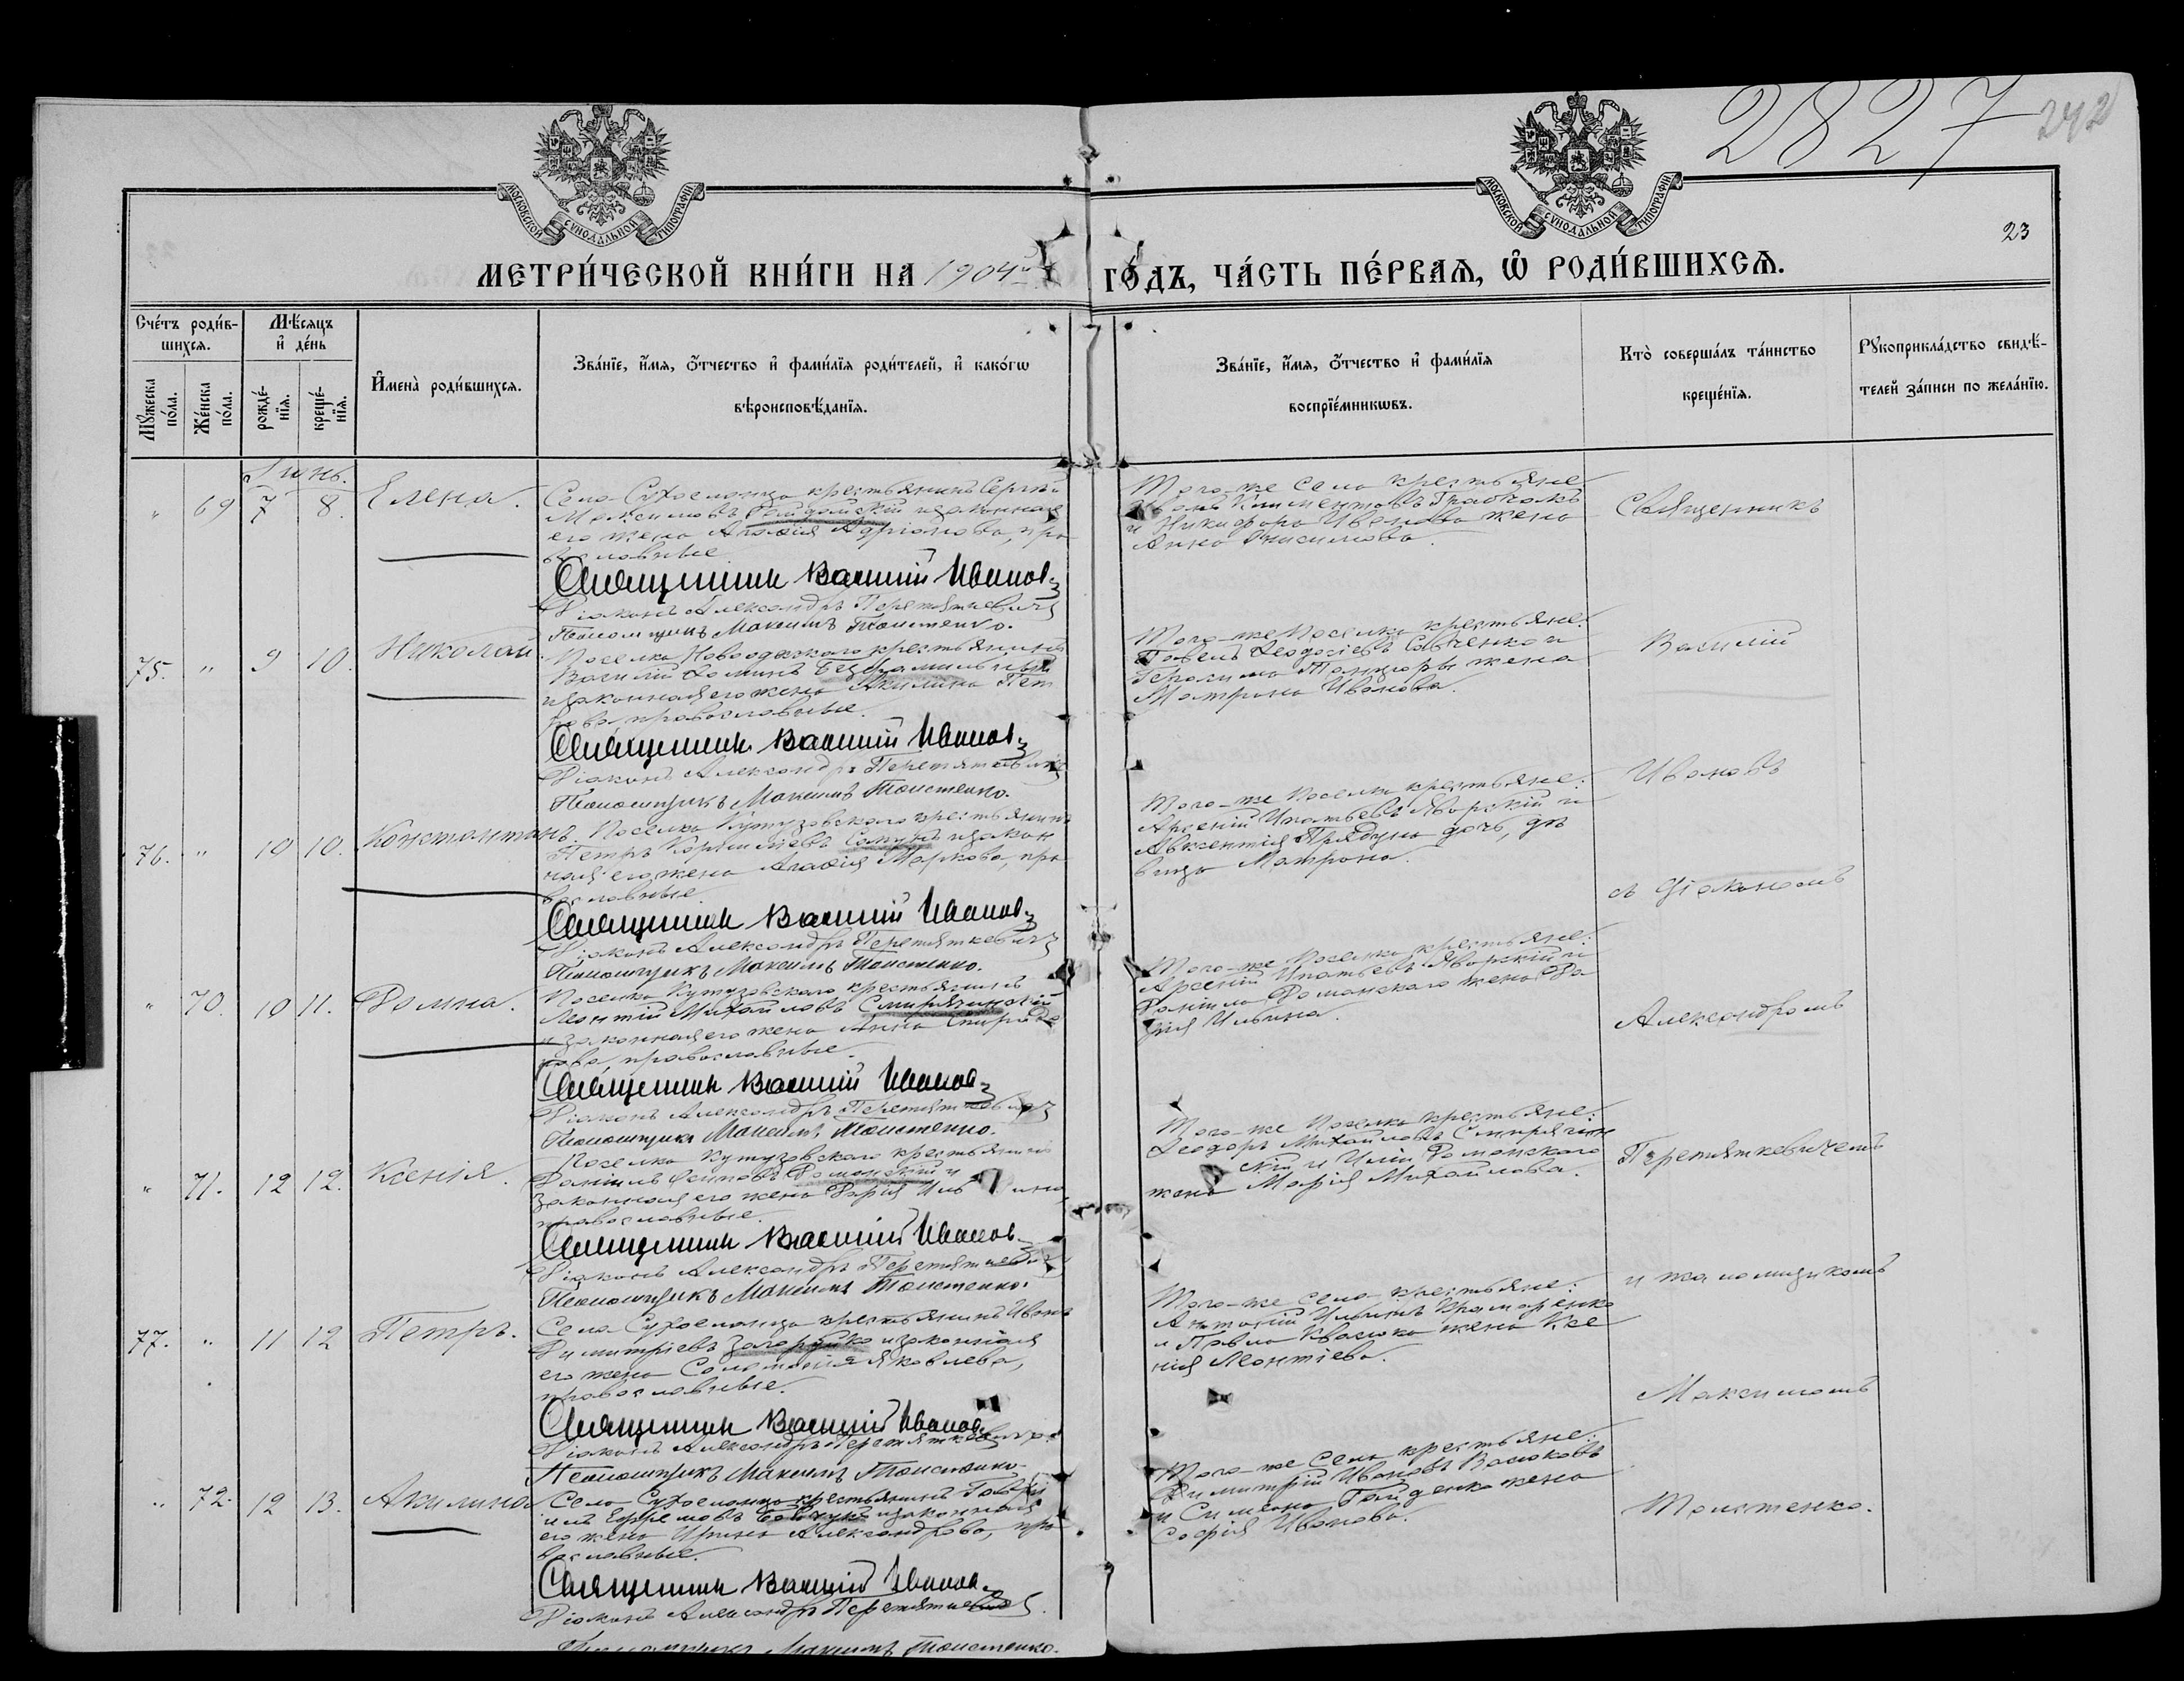 2827
242
МОСКОВСКОЙ СѴНОДАЛЬНОЙ ТИПОГРАФІИ
МОСКОВСКОЙ СѴНОДАЛЬНОЙ ТИПОГРАФІИ
23
МЕТРИ́ЧЕСКОЙ КНИ́ГИ НА 1904й ГО́ДЪ, ЧА́СТЬ ПЕ́РВАѦ, Ѡ҆ РОДИ́ВШИХСѦ.
Сче́тъ роди́в-
шихсѧ.
Мꙋ́жеска по́ла.
Же́нска по́ла.
Мѣ́сѧцъ
и҆ де́нь
рожде́-
нїѧ.
креще́-
нїѧ.
И҆мена̀ роди́вшихсѧ.
Зва́нїе, и҆́мѧ, ѻ҆́тчество и҆ фами́лїѧ роди́телей, и҆ како́гѡ
вѣроисповѣ́данїѧ.
Зва́нїе, и҆́мѧ, ѻ҆́тчество и҆ фами́лїѧ
воспрїе́мникѡвъ.
Кто̀ соверша́лъ та́инство
креще́нїѧ.
Рꙋкоприкла́дство свидѣ́-
телей за́писи по жела́нїю.
Іюнь.
" 69 7 8. Елена.
Села Сухоеланца крестьянинъ Сергѣй
Максимовъ и законная
его жена Агафія Адріанова, пра
вославные.
Священникъ Василій Ивановъ
Діаконъ Александръ Перетяткевичъ
Псаломщикъ Максимъ Толстенко.
Того-же села крестьяне
Климентовъ
и Никифора Иванова жена
Анна Онисимова.
Священникъ
75. " 9 10. Николай.
Поселка Новоодесскаго крестьянинъ
Василій Ѳоминъ Безфамильный
и законная его жена Акилина Пет
рова, православные.
Священникъ Василій Ивановъ
Діаконъ Александръ Перетяткевичъ
Псаломщикъ Максимъ Толстенко.
Того-же поселка крестьяне:
Павелъ Ѳеодосіевъ Савченко и
Герасима жена
Матрона Иванова.
Василій
76. " 10 10. Константинъ.
Поселка Кутузовскаго крестьянинъ
Петръ и закон
ная его жена Агафія Маркова, пра
вославные.
Священникъ Василій Ивановъ
Діаконъ Александръ Перетяткевичъ
Псаломщикъ Максимъ Толстенко.
Того-же поселка крестьяне:
Арсеній Игнатьевъ Яворскій и
Авксентія Прядуна дочь, дѣ
вица Матрона.
Ивановъ
съ Діакономъ
" 70. 10 11. Домна.
Поселка Кутузовскаго крестьянинъ
Леонтій Михайловъ Смирягинскій
и законная его жена Анна Спиридо
нова, православные.
Священникъ Василій Ивановъ
Діаконъ Александръ Перетяткевичъ
Псаломщикъ Максимъ Толстенко.
Того-же поселка крестьяне:
Арсеній Игнатьевъ Яворскій и
Даніила Романскаго жена Да
рія Ильина.
Александромъ
" 71. 12 12. Ксенія.
Поселка Кутузовскаго крестьянинъ
Даніилъ Романскій и
законная его жена Дарія Ильина,
православные.
Священникъ Василій Ивановъ
Діаконъ Александръ Перетяткевичъ
Псаломщикъ Максимъ Толстенко.
Того-же поселка крестьяне:
Ѳеодоръ Михайловъ Смирягин
скій и Иліи Романскаго
жена Марія Михайлова.
Перетяткевичемъ
77. " 11 12 Петръ.
Села Сухоеланца крестьянинъ Иванъ
Димитріевъ Загоруйко и законная
его жена Соломонія Яковлева,
православные.
Священникъ Василій Ивановъ
Діаконъ Александръ Перетяткевичъ
Псаломщикъ Максимъ Толстенко.
Того-же села крестьяне:
Антоній Ильинъ Крамаренко
и Павла Квасюка жена Ксе
нія Леонтіева.
и псаломщикомъ
Максимомъ
" 72. 12 13. Акилина
Села Сухоеланца крестьянинъ
Ефремовъ и законная
его жена Ирина Александрова, пра
вославные.
Священникъ Василій Ивановъ
Діаконъ Александръ Перетяткевичъ
Псаломщикъ Максимъ Толстенко.
Того-же села крестьяне:
Димитрій Ивановъ Васюковъ
и Симеона Гайденка жена
Софія Иванова.
Толстенко.